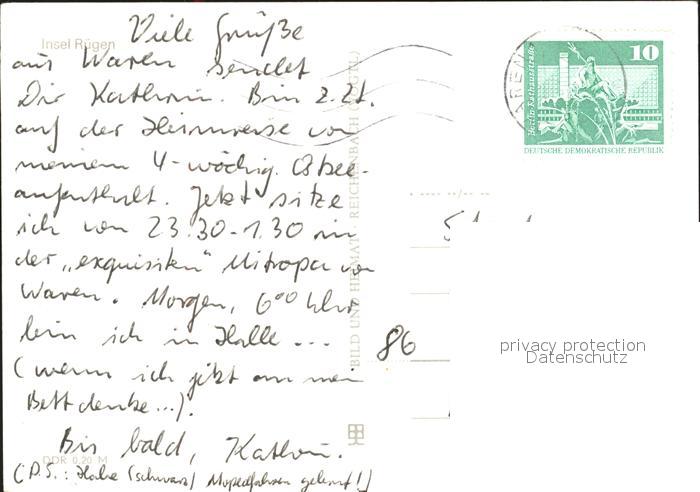 Insel Rügen
Viele Grüße
aus Waren sendet
Dir Kathrin. Bin z.Zt.
auf der Heimreise von
meinem 4-wöchig. Ostsee-
aufenthalt. Jetzt sitze
ich von 23.30-1.30 in
der „exquisiten" Mitropa von
Waren. Morgen, 6⁰⁰ Uhr
bin ich in Halle ...
(wenn ich jetzt an mein
Bett denke...).
Bis bald, Kathrin.
(P.S.: Habe (schwarz) Mopedfahren gelernt!)
DDR 0,20 M
BILD UND HEIMAT · REICHENBACH (VOGTL)
86
WAREN
Berlin-Rathausstraße
10
DEUTSCHE DEMOKRATISCHE REPUBLIK
privacy protection
Datenschutz